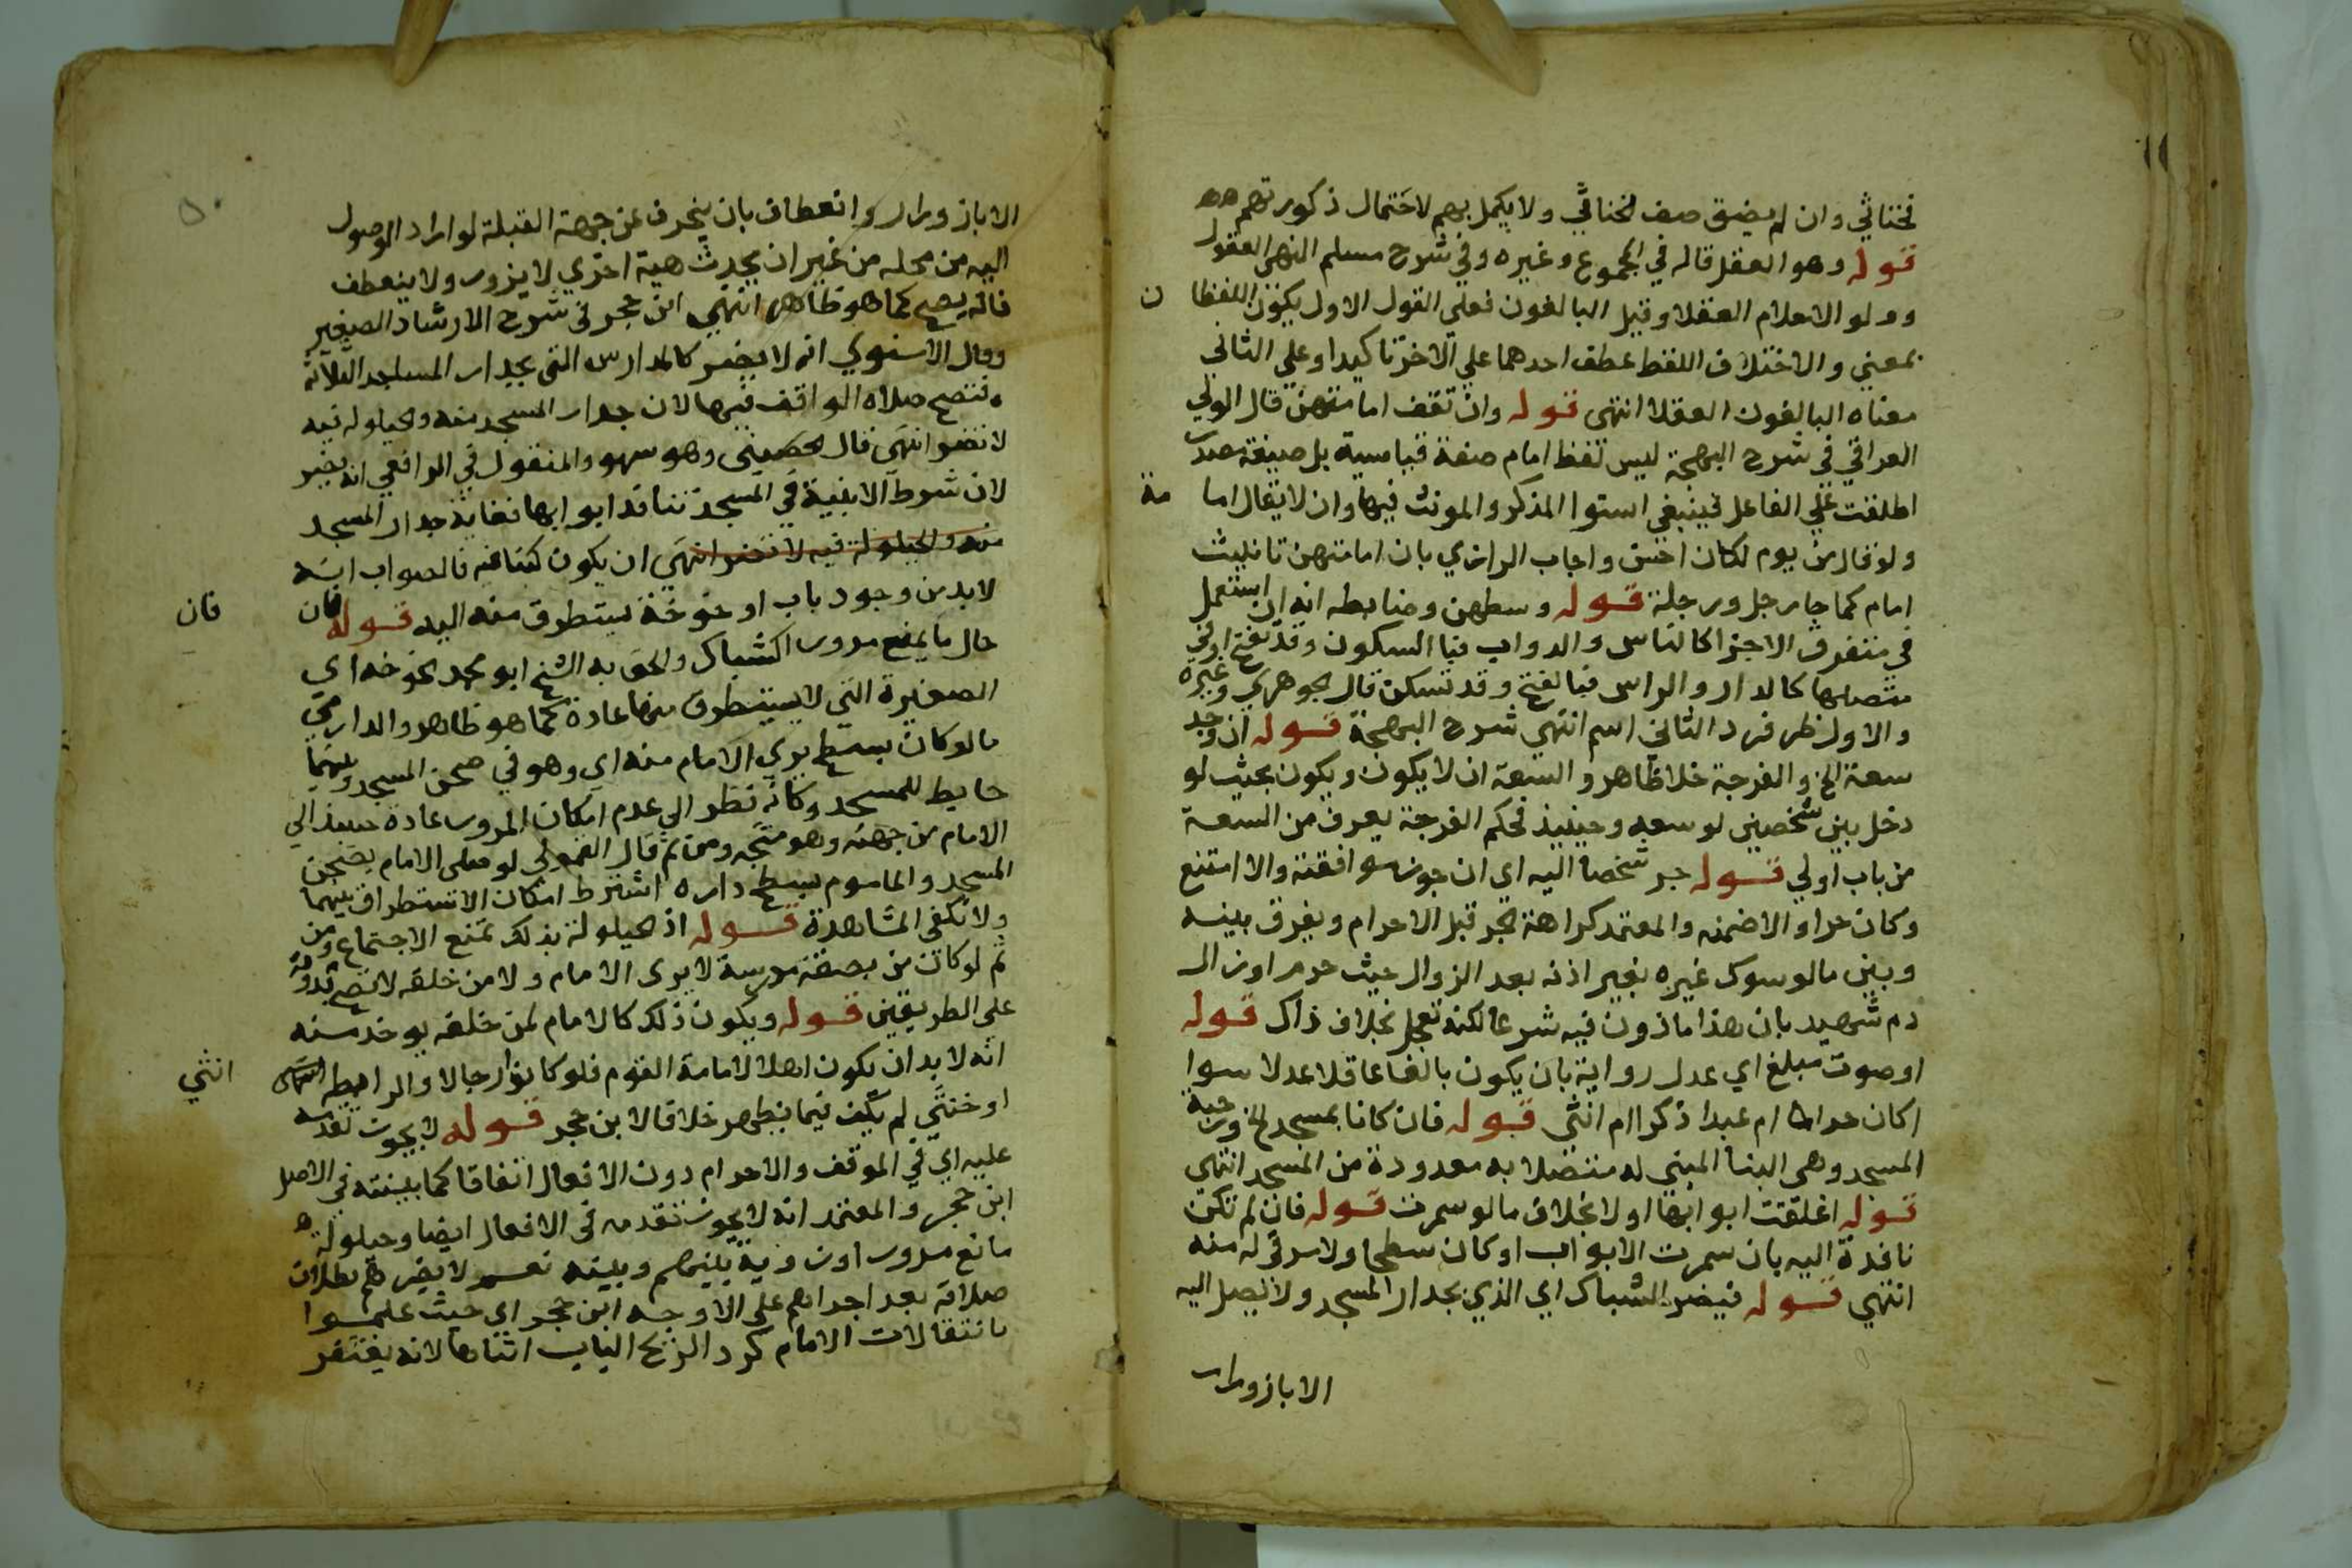 فخناثي وان لم يضق صف الخناثي ولا يكمل بهم لاحتمال ذكورتهم
قوله وهو العقل قاله في المجموع وغيره وفي شرح مسلم النهى العقول
واولو الاحلام العقلا وقيل البالغون فعلي القول الاول يكون اللفظا ن
بمعني والاختلاف اللفظ عطف احدهما علي الاخر تاكيدا وعلي الثاني
معناه البالغون العقلا انتهى قوله وان تقف امامتهن قال الولي
العراقي في شرح البهجة ليس لفظ امام صفة قياسية بل صيغة مصدر
اطلقت علي الفاعل فينبغي استوا المذكر والمونث فيها وان لا يقال اما مة
ولو قال من يوم لكان احسن واجاب الرازي بان امامتهن تانيث
امام كما جا رجل ورجلة قوله وسطهن وضابطه انه ان استعمل
في متفرق الاجزا كالناس والدواب فبا السكون وقد يفتح او في
متصلها كالدار والراس فبالفتح وقد تسكن قال الجوهري وغيره
والاول ظرف والثاني اسم انتهي شرح البهجة قوله ان وجد
سعة الخ والفرجة خلا ظاهر والسعة ان لا يكون ويكون بحيث لو
دخل بين شخصين لوسعه وحينيذ فحكم الفرجة يعرف من السعة
من باب اولي قوله جر شخصا اليه اي ان جوز موافقته والا امتنع
وكان حرا والا ضمنه والمعتمد كراهة الجر قبل الاحرام ويفرق بينه
وبين مالو سوك غيره بغير اذنه بعد الزوال حيث حرم اوزال
دم شهيد بان هذا ماذون فيه شرعا لكنه تعجل بخلاف ذاك قوله
اوصوت مبلغ اي عدل رواية بان يكون بالغا عاقلا عدلا سوا
اكان حرا ام عبدا ذكرا ام انثى قوله فان كانا بمسجد الخ ورحبة
المسجد وهي البنا المبنى له متصلا به معدودة من المسجد انتهى
قوله اغلقت ابوابها او لا بخلاف مالو سمرت قوله فان لم تكن
نافذة اليه بان سمرت الابواب اوكان سطحا ولا مرقى له منه
انتهي قوله فيضر الشباك اي الذي بجدار المسجد ولا يصل اليه
الا بازورار
الا بازورار وانعطاف بان ينحرف عن جهة القبلة لو اراد الوصول
اليه من محله من غير ان يحدث هية اخري لا يزور ولا ينعطف
فانه يصح كما هو ظاهر انتهي ابن حجر في شرح الارشاد الصغير
وقال الاسنوي انه لا يضر كالمدارس التي بجدار المساجد الثلاثة
فتصح صلاه الواقف فيها لان جدار المسجد منه والحيلوله فيه
لا تضر انتهي قال الحصيني وهو سهو والمنقول في الرافعي انه يضر
لان شرط الابنية في المسجد تنافذ ابوابها فغاية جدار المسجد
منه والحيلولة فيه لا تضر انتهي ان يكون كبناء فيه فالصواب انه
لابد من وجود باب او خوخة يستطرق منه اليه قوله فان فان
حال ما يمنع مرورا كشباك والحق به الشيخ ابو محمد الخوخه اي
الصغيرة التي لا يستطرق منها عادة كما هو ظاهر والدارمي
مالو كان بسطح يري الامام منه اي وهو في صحن المسجد وبينهما
حايط للمسجد وكانه نظر الي عدم امكان المرور عادة حينيذ الي
الامام من جهته وهو متجه ومن ثم قال القمولي لو صلى الامام بصحن
المسجد والماموم بسطح داره اشترط امكان الاستطراق بينهما
ولا تكفى المشاهدة قوله اذ الحيلولة بذلك تمنع الاجتماع ومن
ثم لو كان من بصفة مدرسة لا يرى الامام ولا من خلفه لا تصح قدوته
على الطريقين قوله ويكون ذلك كالامام لمن خلفه يوخذ منه
انه لا بد ان يكون اهلا لامامة القوم فلو كانوا رجالا والرابطه انثي
اوخنثي لم يكف فيما يظهر خلافا لابن حجر قوله لا يجوز تقدمه
عليه اي في الموقف والاحرام دون الافعال اتفاقا كما بينته في الاصل
ابن حجر والمعتمد انه لا يجوز تقدمه في الافعال ايضا وحيلولة
مانع مرور اورؤية بينهم وبينه نعم لا يضرهم بطلان
صلاته بعد احرامهم علي الاوجه ابن حجر اي حيث علموا
بانتقالات الامام كرد الريح الباب اثناها لانه يغتفر